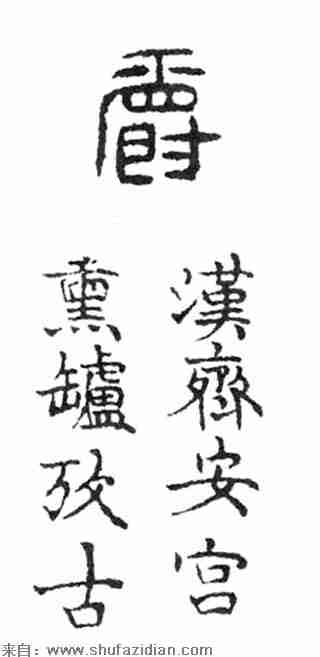 爵
漢齊安宫
熏罏攷古
来自：www.shufazidian.com